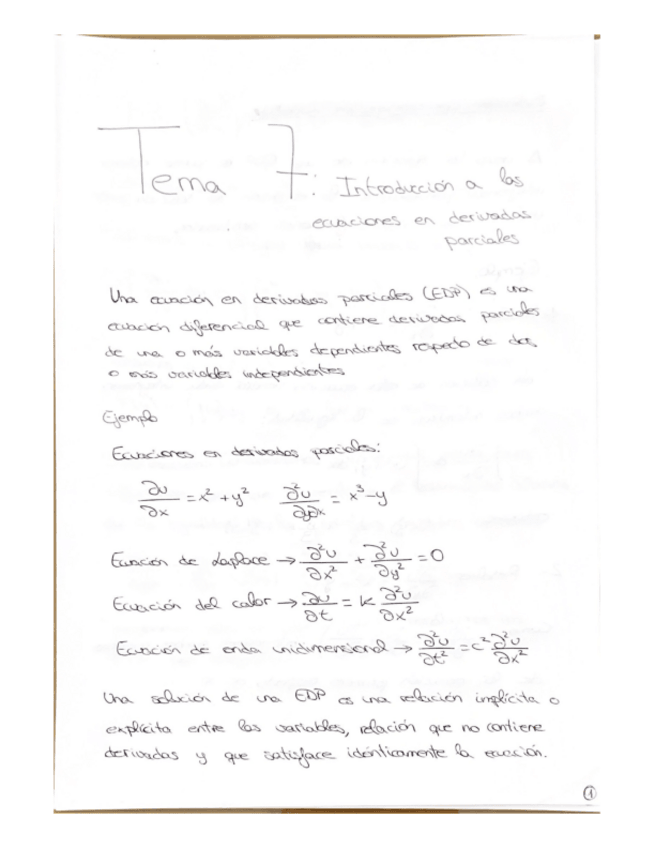 Tema 7: Introducción a las
ecuaciones en derivadas
parciales
Una ecuación en derivadas parciales (EDP) es una
ecuación diferencial que contiene derivadas parciales
de una o más variables dependientes respecto de dos
o más variables independientes
Ejemplo
Ecuaciones en derivadas parciales:
∂u/∂x = x² + y²    ∂²u/∂y∂x = x³ - y
Ecuación de Laplace → ∂²u/∂x² + ∂²u/∂y² = 0
Ecuación del calor → ∂u/∂t = k ∂²u/∂x²
Ecuación de onda unidimensional → ∂²u/∂t² = c² ∂²u/∂x²
Una solución de una EDP es una relación implícita o
explícita entre las variables, relación que no contiene
derivadas y que satisface idénticamente la ecuación.
1